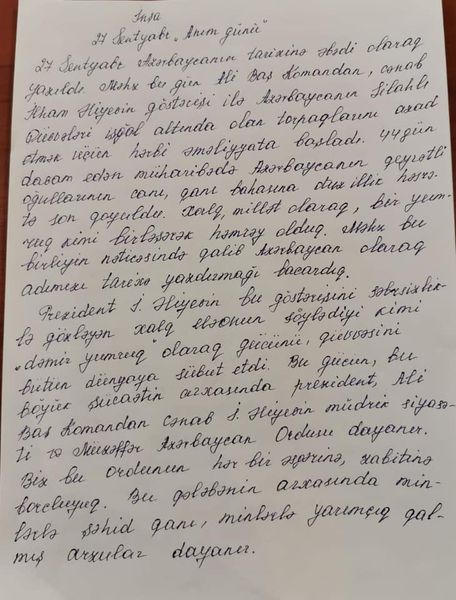 İnşa
27 Sentyabr „Anım günü"
27 Sentyabr Azərbaycanın tarixinə əbədi olaraq
yazıldı. Məhz bu gün Ali Baş Komandan, cənab
İlham Əliyevin göstərişi ilə Azərbaycanın Silahlı
Qüvvələri işğal altında olan torpaqlarını azad
etmək üçün hərbi əməliyyata başladı. 44 gün
davam edən müharibədə Azərbaycanın qeyrətli
oğullarının canı, qanı bahasına otuz illik həsrə-
tə son qoyuldu. Xalq, millət olaraq, bir yum-
ruq kimi birləşərək həmrəy olduq. Məhz bu
birliyin nəticəsində qalib Azərbaycan olaraq
adımızı tarixə yazdırmağı bacardıq.
Prezident İ. Əliyevin bu göstərişini səbrsizlik-
lə gözləyən xalq elə onun söylədiyi kimi
„dəmir yumruq" olaraq gücünü, qüvvəsini
bütün dünyaya sübut etdi. Bu gücün, bu
böyük şücaətin arxasında prezident, Ali
Baş Komandan cənab İ. Əliyevin müdrik siyasə-
ti və Müzəffər Azərbaycan Ordusu dayanır.
Biz bu ordunun hər bir əsgərinə, zabitinə
borcluyuq. Bu qələbənin arxasında min-
lərlə şəhid qanı, minlərlə yarımçıq qal-
mış arzular dayanır.